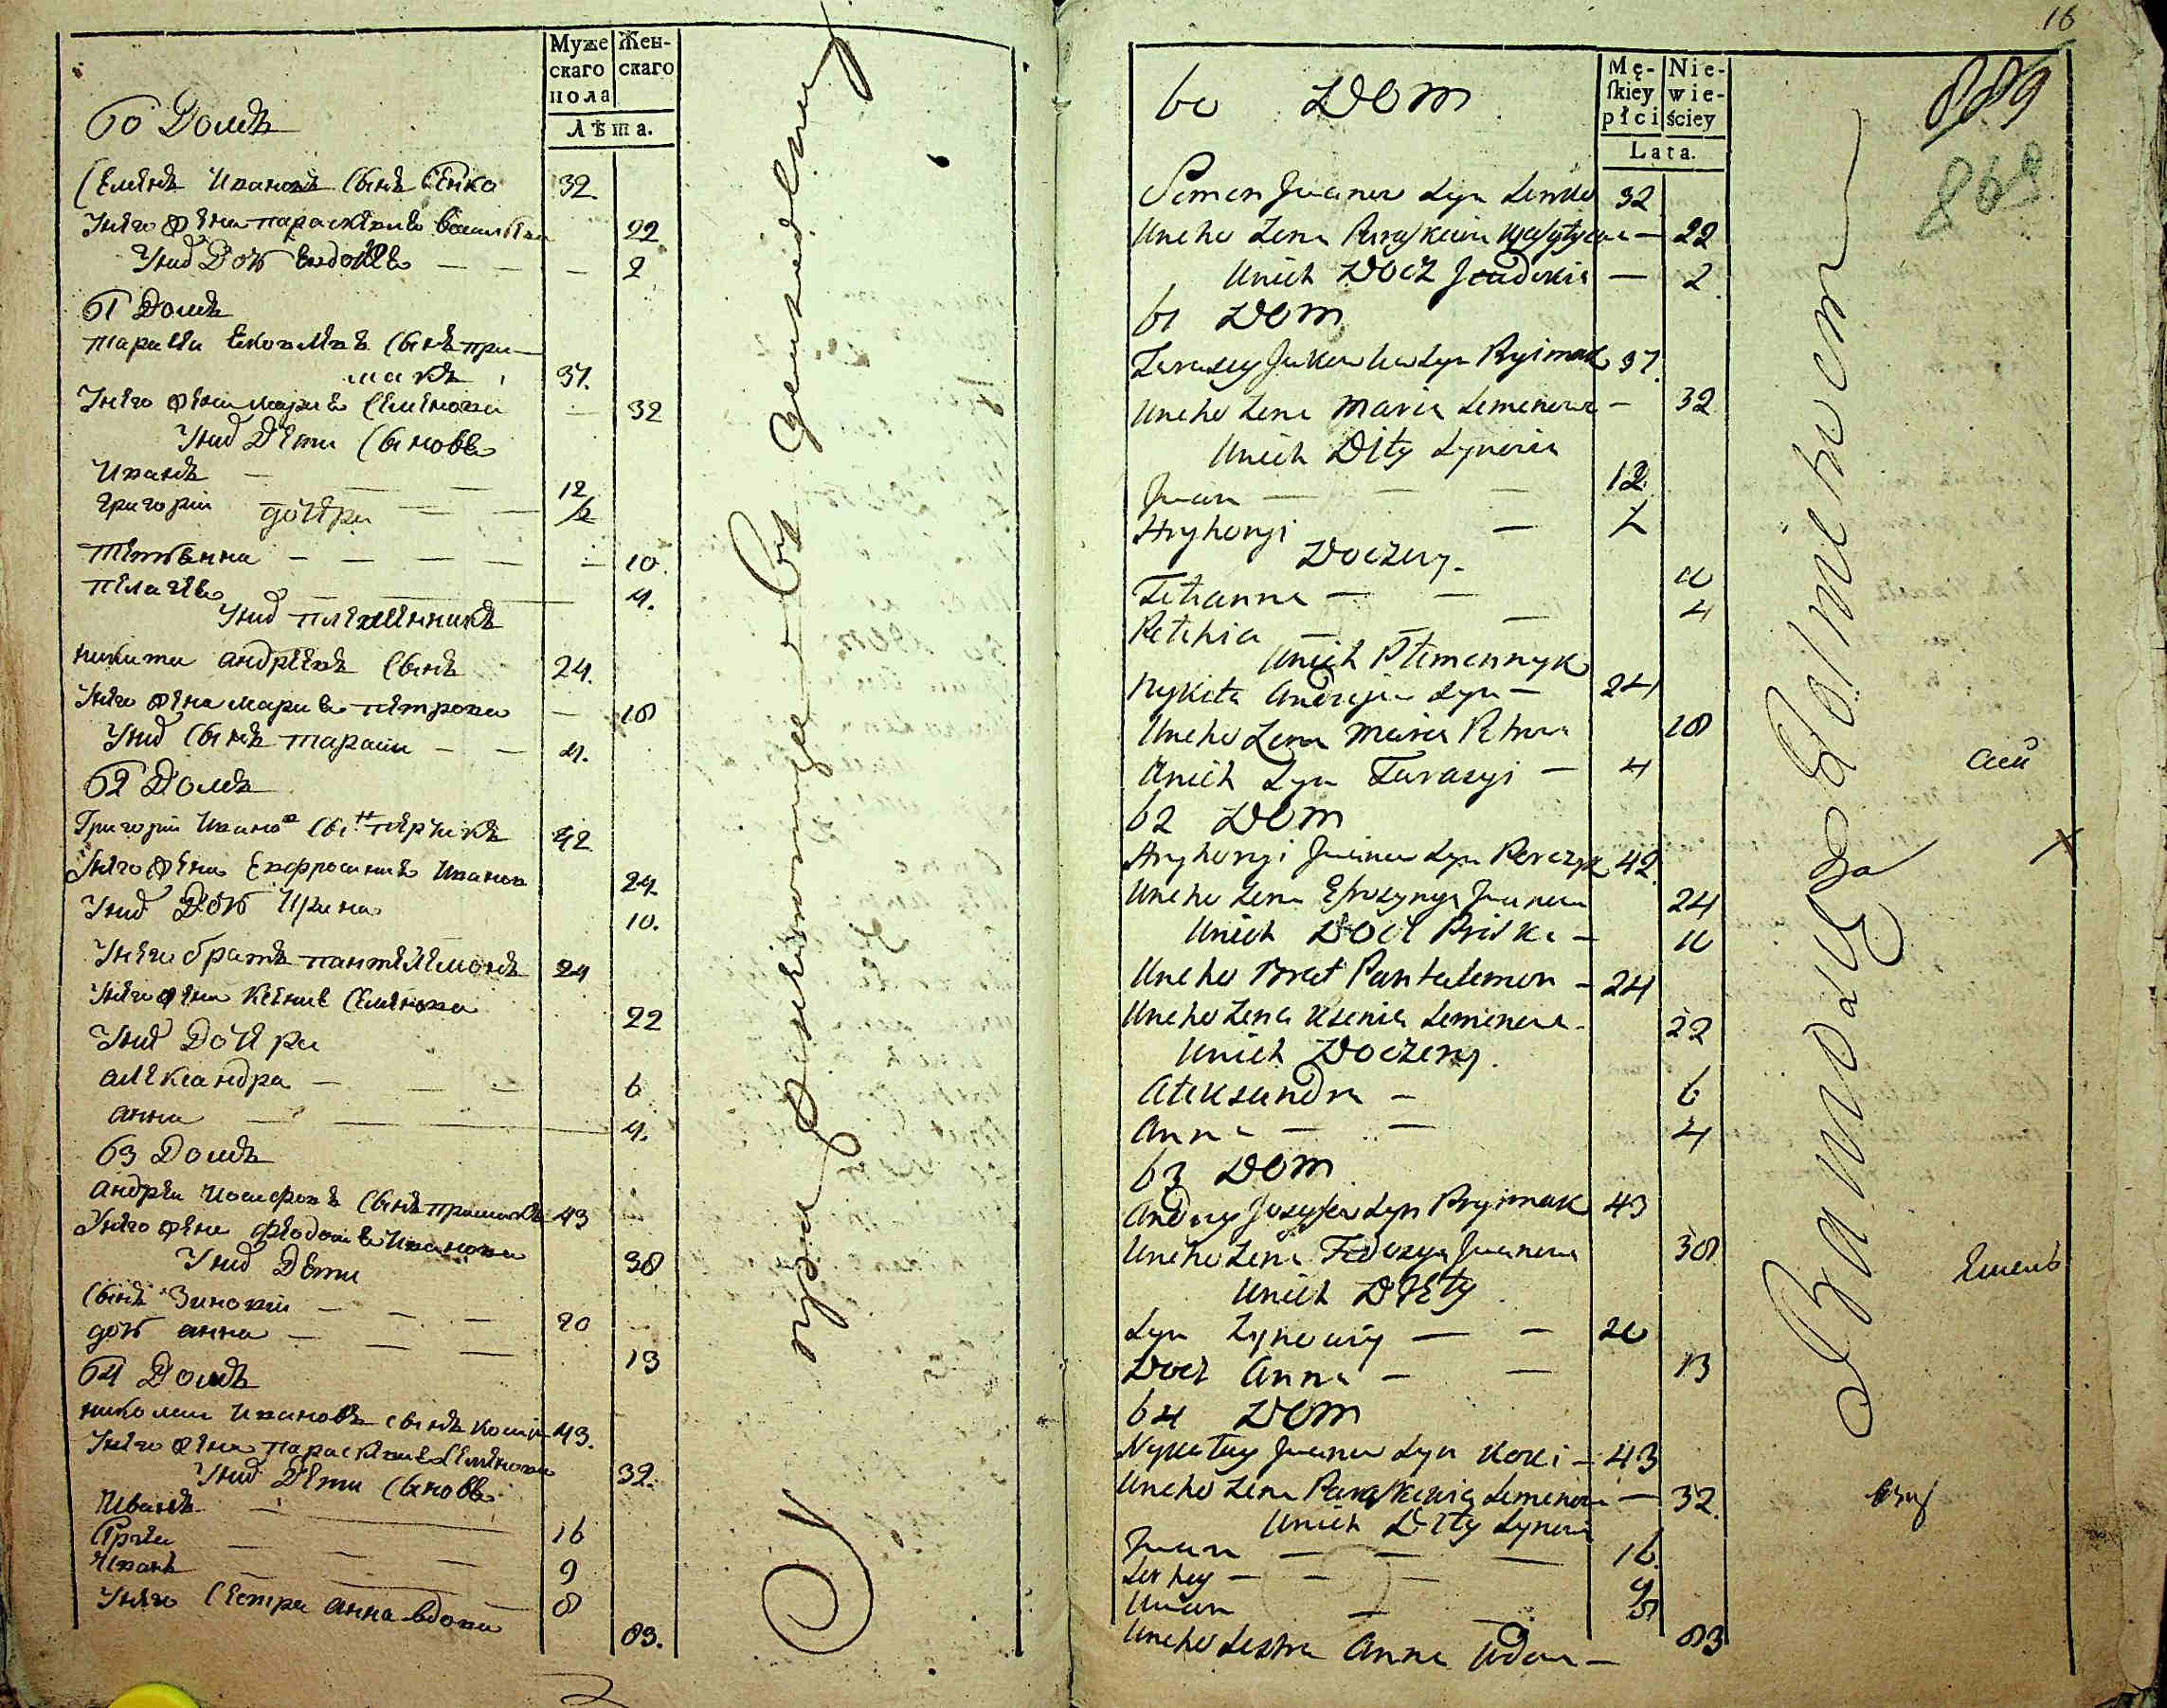 Муже
скаго
пола
Жен-
скаго
Лѣта.
60 Домъ
Семенъ Ивановъ Сынъ Сенко 32
Унего жена Параскевия Васильева 22
Уних Доч Евдокия — — — 2
61 Домъ
Тарасий Яковлевъ Сынъ При-
макъ 37.
Унего жена Мария Семенова — 32
Уних Дети Синовя
Иванъ — — — 12
Григорий — — 2
дочери
Татианна — — — — 10.
Пелагея — 4.
Уних племенникъ
Никита Андреевъ Сынъ 24.
Унего жена Мария Петрова — 18
Уних Сынъ Тарасий — — 4.
62 Домъ
Григорий Иванов Сын Перчикъ 42
Унего жена Евфросиния Иванов 24
Уних Доч Ирина 10.
Унего братъ Пантелемонъ 24
Унего жена Ксения Семенова 22
Уних Дочери
Александра — — — 6
Анна — — 4.
63 Домъ
Андрей Иосифовъ Сынъ Примакъ 43
Унего жена Феодосия Иванова 38
Уних Дети
Сынъ Зиновий — — — 20
доч Анна — — — 13
64 Домъ
Николай Ивановъ Сынъ Коций 43.
Унего жена Параскевия Семенова 32.
Уних Дети Синовя
Иванъ — 16
Сргей — — — 9
Иванъ — — 8
Унего Сестра Анна вдова 83.
16
889
869
Mę-
ſkiey
płci
Nie-
wie-
ściey
Lata.
60 Dom
Semen Jwanow Syn Senko 32
Uneho Zena Paraſkewia Waſylyewa — 22
Unich Docz Jewdokia — 2
61 Dom
Tarasey Jakowlew Syn Pryimak 37.
Uneho Zena Maria Semenowa — 32
Unich Dity Synowia
Jwan — — — 12
Hryhoryi — 2
Doczery.
Tetianna — — 10
Pelehia — — — 4
Unich Plemennyk
Nykita Andrejew Syn — 24
Uneho Zena Maria Petrowa 18
Unich Syn Tarasyi — 4
62 Dom
Hryhoryi Jwanow Syn Perczyk 42
Uneho Zena Efrozynya Jwanowa 24
Unich Docz Priska — 10
Uneho Brat Pantalemon — 24
Uneho Zena Ksenia Semenowa — 22
Unich Doczery.
Aleksandra — 6
Anna — — 4
63 Dom
Andrey Jozyfow Syn Pryimak 43
Uneho Zena Fedosya Jwanowa 38
Unich Dity
Syn Zynowiy — — 20
Docz Anna — — 13
64 Dom
Nykołay Jwanow Syn Koci — 43
Uneho Zena Paraſkewia Semenowa — 32.
Unich Dity Synowia
Jwan — — — 16.
Serhey — — — 9
Jwan — — 8
Uneho Sestra Anna Wdowa — 83